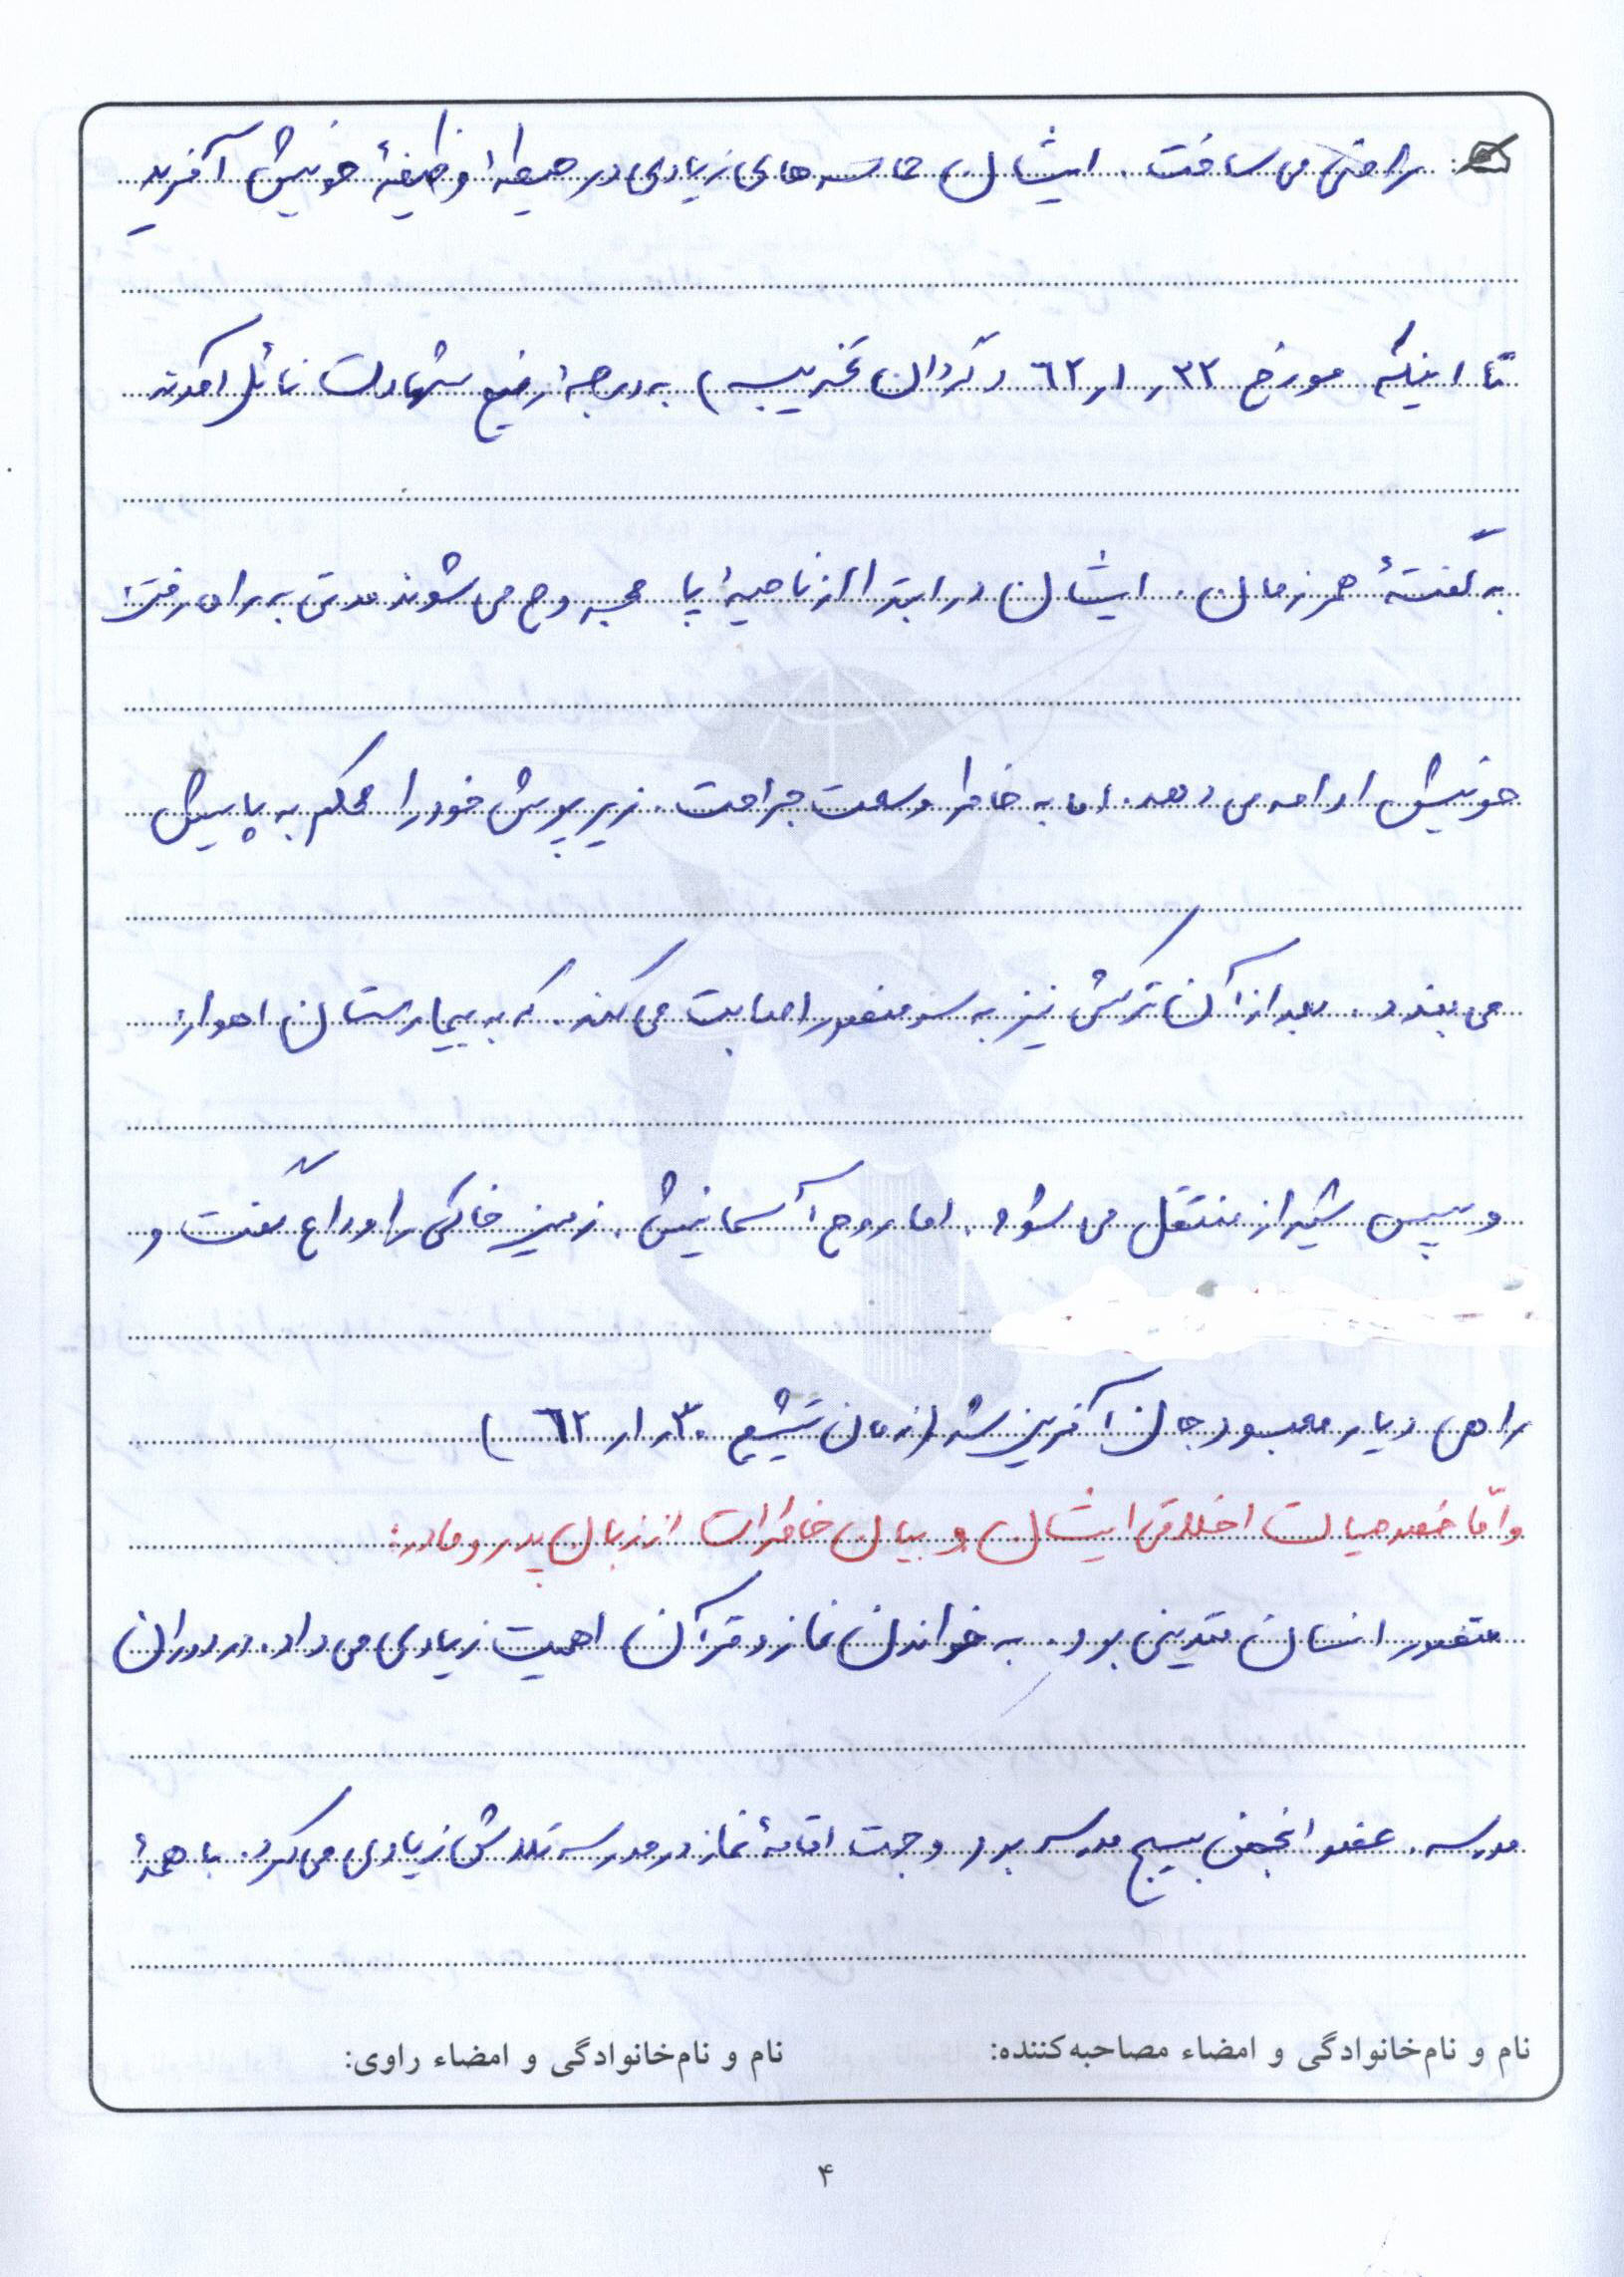 راضی می ساخت. ایشان حماسه های زیادی در حیطهٔ وظیفهٔ خویش آفرید
تا اینکه مورخ ۲۳ر۱ر۶۲ (گردان تخریب) به درجهٔ رفیع شهادت نائل آمدند
به گفتهٔ همرزمان. ایشان در ابتدا از ناحیهٔ پا مجروح می شوند مدتی به راه رفتن
خویش ادامه می دهد. اما به خاطر وسعت جراحت. زیرپوش خود را محکم به پایش
می بندد. بعد از آن ترکش نیز به سر منصور اصابت می کند. که به بیمارستان اهواز
و سپس شیراز منتقل می شود. اما روح آسمانیش. زمین خاکی را وداع گفت و
راهی دیار معبود جان آفرین شد (زمان تشییع ۳۰ر۱ر۶۲)
و امّا خصوصیات اخلاقی ایشان و بیان خاطرات از زبان پدر و مادر:
منصور انسان متدینی بود. به خواندن نماز و قرآن اهمیت زیادی می داد. در دوران
مدرسه. عضو انجمن بسیج مدرسه بود و جهت اقامهٔ نماز در مدرسه تلاش زیادی می کرد. با همهٔ
نام و نام‌خانوادگی و امضاء مصاحبه‌کننده: نام و نام‌خانوادگی و امضاء راوی:
۴